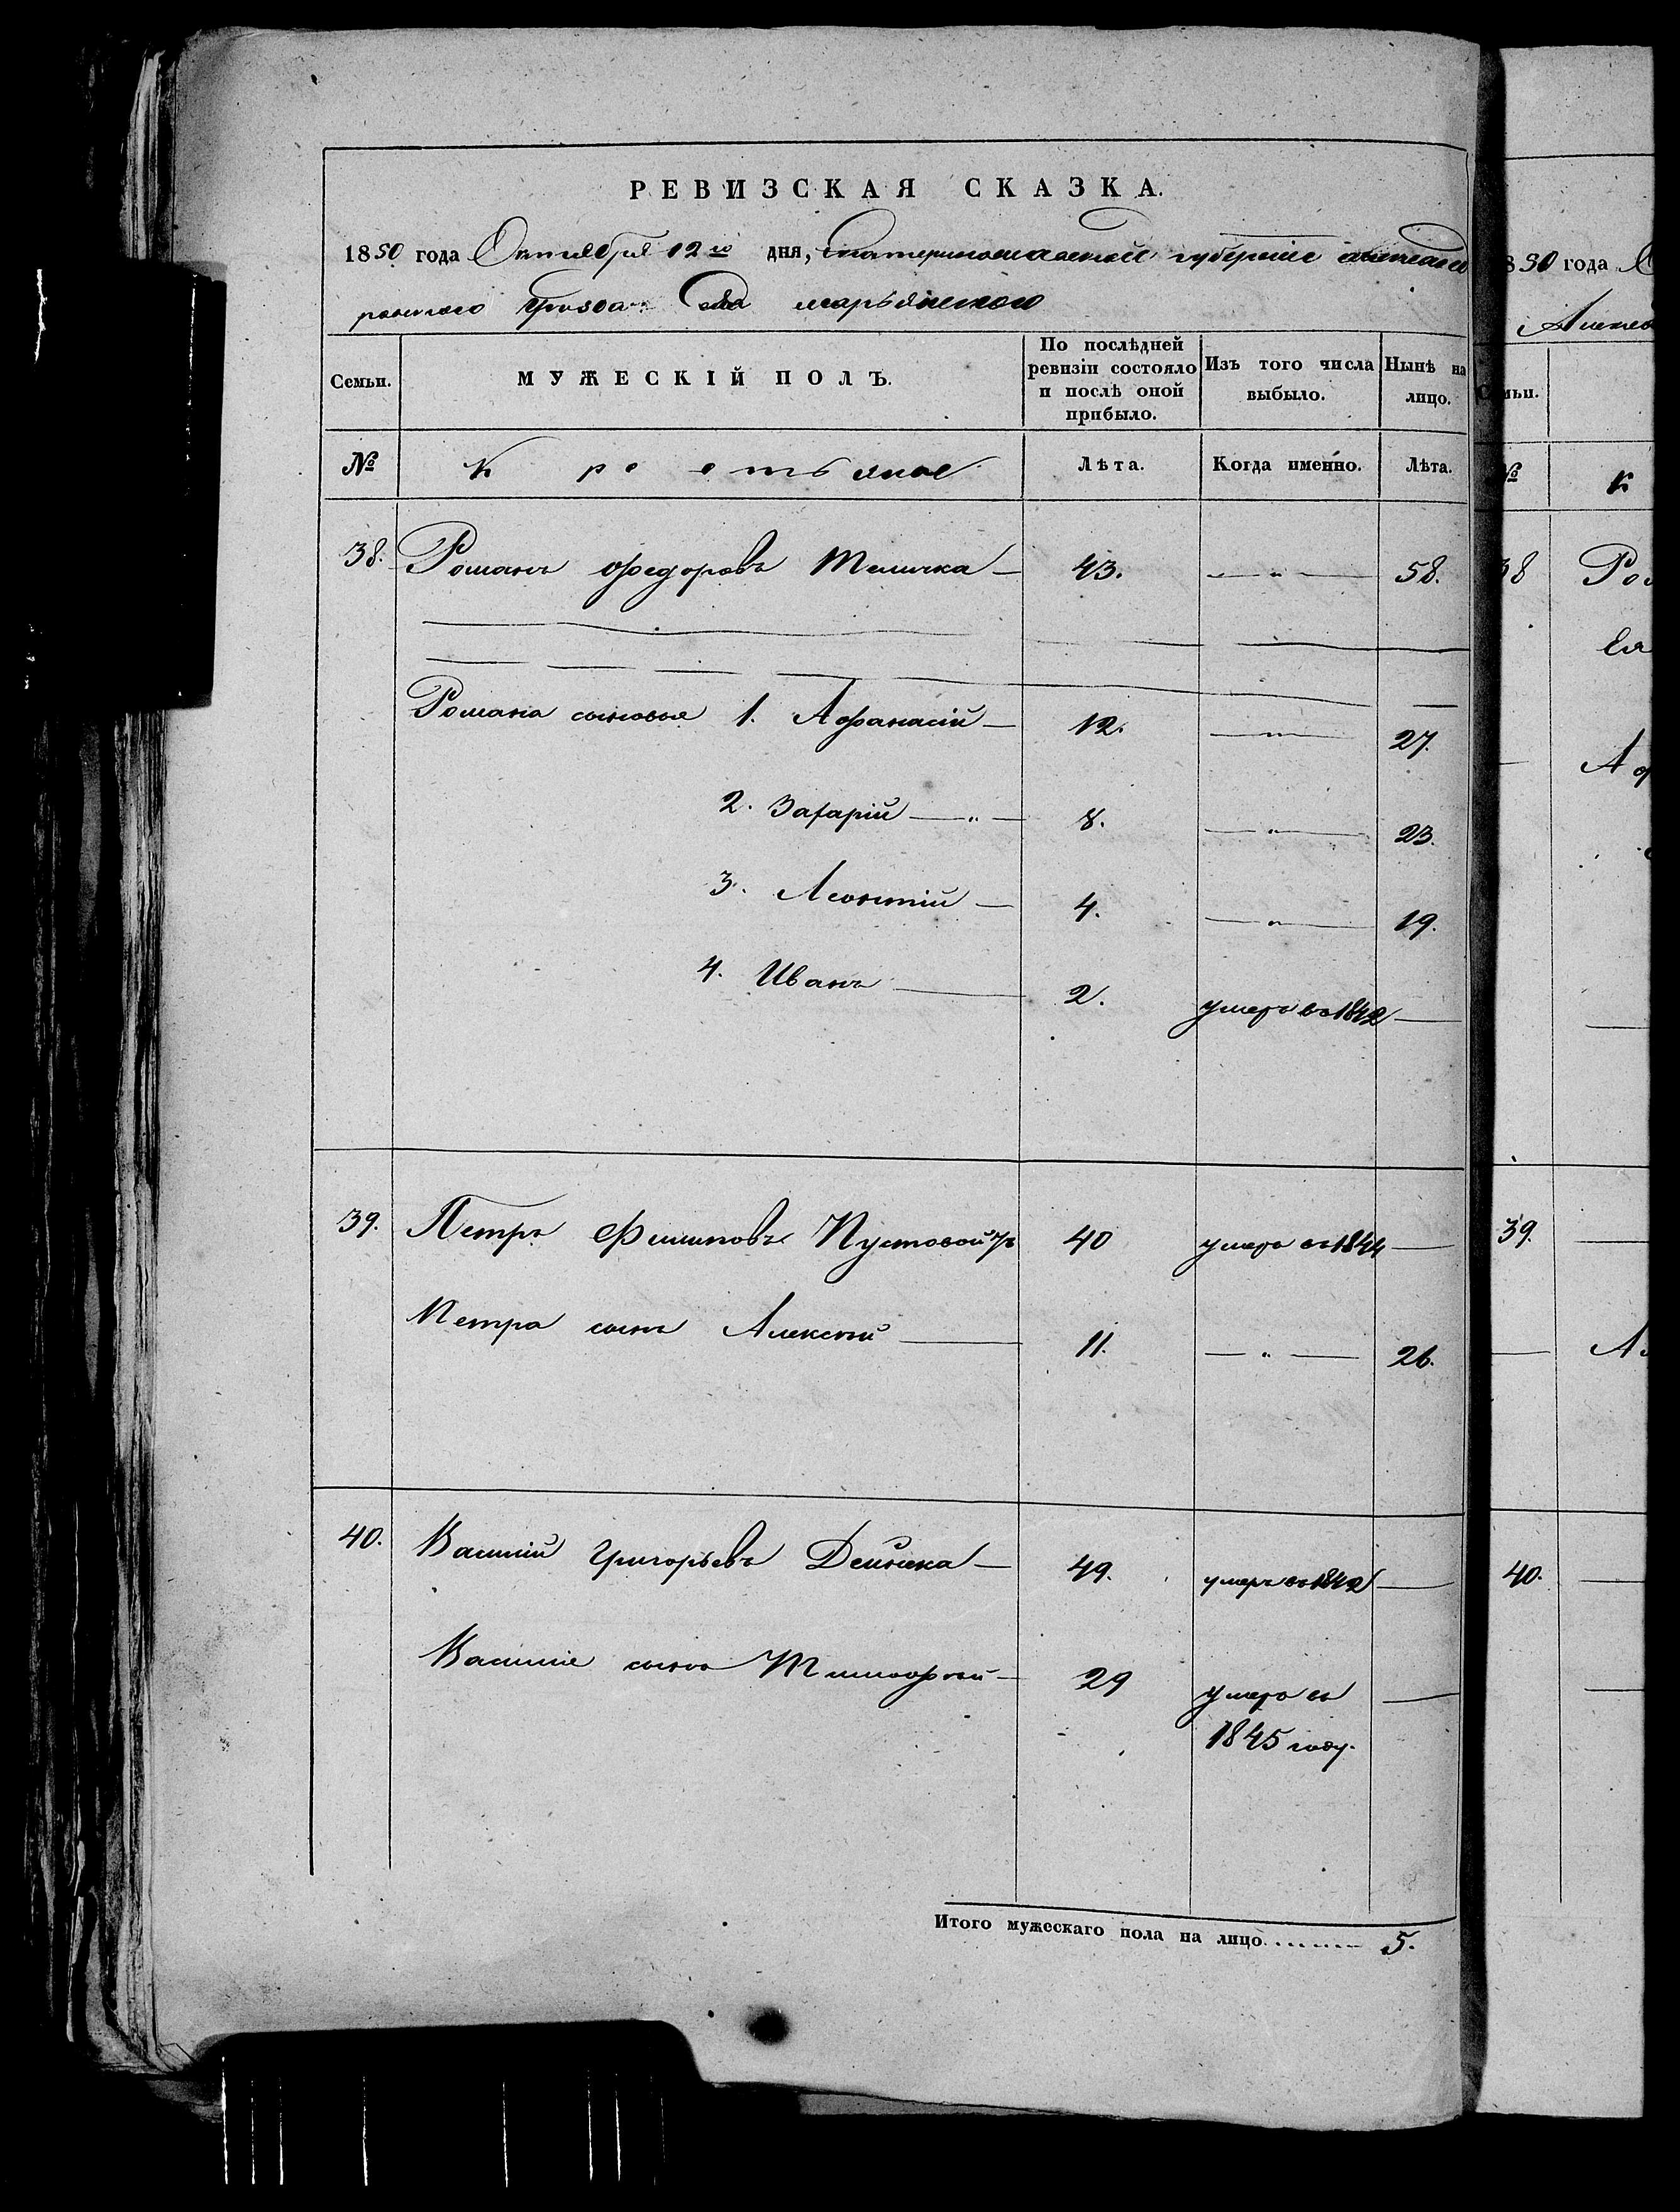 РЕВИЗСКАЯ СКАЗКА.
1850 года Октября 12го дня, Екатеринославской губерніи Александро
ровскаго уѣзда села марьянскаго
Семьи.
МУЖЕСКІЙ ПОЛЪ.
По послѣдней ревизіи состояло и послѣ оной прибыло.
Изъ того числа выбыло.
Нынѣ на лицо.
№ Крестьяне Лѣта. Когда именно. Лѣта.
38. Романъ Федоровъ Теличка — 43. — " — 58.
Романа сыновья 1. Афанасій — 12. — " — 27.
2. Захарій — " — 8. — " — 23.
3. Леонтій — 4. — " — 19.
4. Иванъ — 2. умеръ въ 1842 —
39. Петръ Филиповъ Пустовойтъ 40 умеръ въ 1844 —
Петра сынъ Алексѣй — 11. — " — 26.
40. Василій Григорьевъ Дейнека — 49. умеръ въ 1842 —
Василія сынъ Тимофѣй — 29 умеръ въ —
1845 году.
Итого мужескаго пола на лицо........ 5.
850 года
Семьи.
№ К
38 Ро
Аф
39.
40.